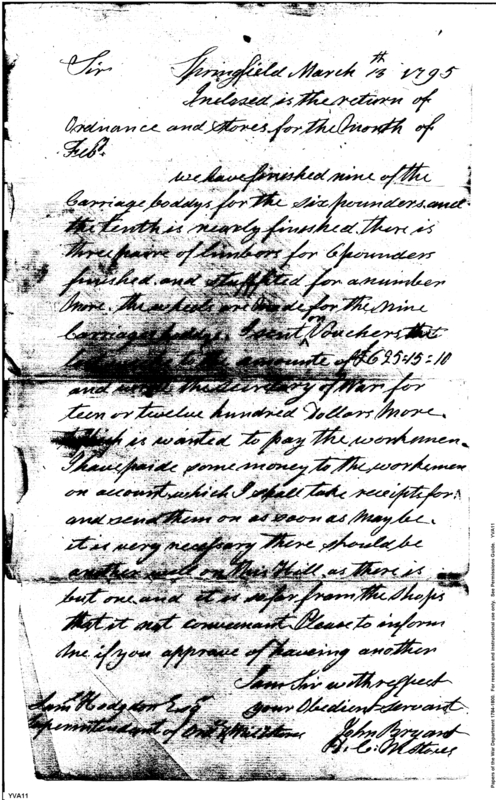 Sir Springfield March 13th 1795
Inclosed is the return of
Ordnance and Stores for the Month of
Feby.
we have finished nine of the
Carriage boddys for the six pounders and
the tenth is nearly finished. there is
three paire of limbors for 6 pounders
finished. and stuff fited for a number
More. the wheels are Made for the Nine
Carriage boddys. I sent on Vouchers
to the amounte of $625=15=10
and the Secretary of War for
teen or twelve hundred Dollars More.
Which is wanted to pay the workemen.
I have paide some money to the workemen
on account, which I shall take receipts for.
and send them on as soon as May be.
it is very necessary there should be
another well on this Hill. as there is
but one. and it is so far from the shops
that it not convenant Please to inform
Me if you approve of haveing another
I am Sir with respect
your Obedient Servant
John Bryant
Saml. Hodgdon Esqr.
Superintendant of
YVA11
Papers of the War Department 1784-1800. For research and instructional use only. See Permissions Guide. YVA11